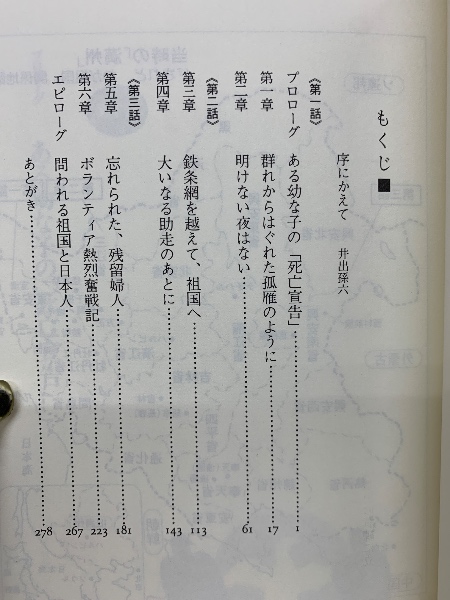 もくじ■
序にかえて　井出孫六
《第一話》
プロローグ　ある幼な子の「死亡宣告」……1
第一章　群れからはぐれた孤雁のように……17
第二章　明けない夜はない……61
《第二話》
第三章　鉄条網を越えて、祖国へ……113
第四章　大いなる助走のあとに……143
《第三話》
第五章　忘れられた、残留婦人……181
第六章　ボランティア熱烈奮戦記……223
エピローグ　問われる祖国と日本人……267
あとがき……278
当時の「満州」